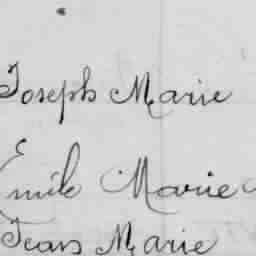 Joseph Marie
Emile Marie
Jean Marie